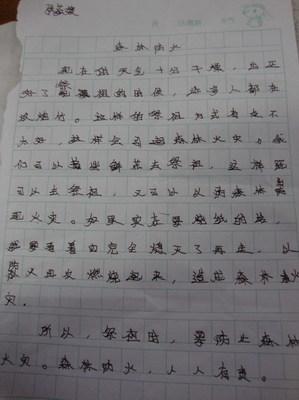 森林防火
现在的天气十分干燥，也正
好了祭祖的时候，许多人都在
烧纸钱。这样的祭祖方式有点不
太好，这样会引起森林火灾。
们可以去祭祖，这样既
可以去祭祖，又可以以防森林
起火灾。如果实在要烧纸的话，
要看着它完全熄灭了再走，以
防又再次燃烧起来，造成森林火
灾。
所以，祭祖时，要防止森林
火灾。森林防火，人人有责。